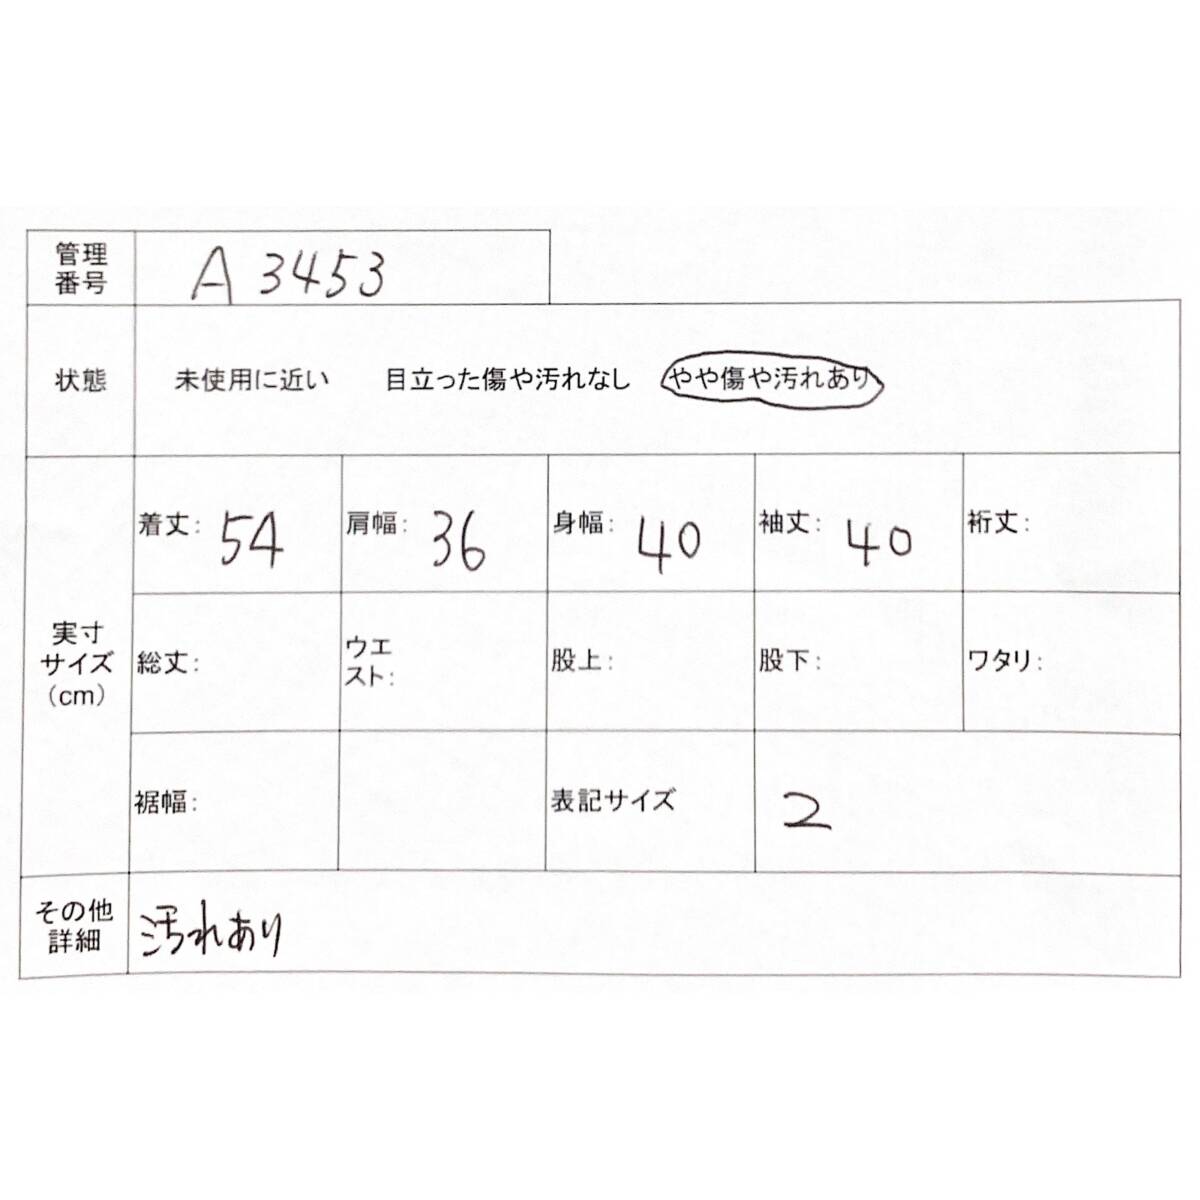 管理
番号
A 3453
状態
未使用に近い 目立った傷や汚れなし やや傷や汚れあり
実寸
サイズ
(cm)
着丈: 54
肩幅: 36
身幅: 40
袖丈: 40
裄丈:
総丈:
ウエ
スト:
股上:
股下:
ワタリ:
裾幅:
表記サイズ
2
その他
詳細
汚れあり